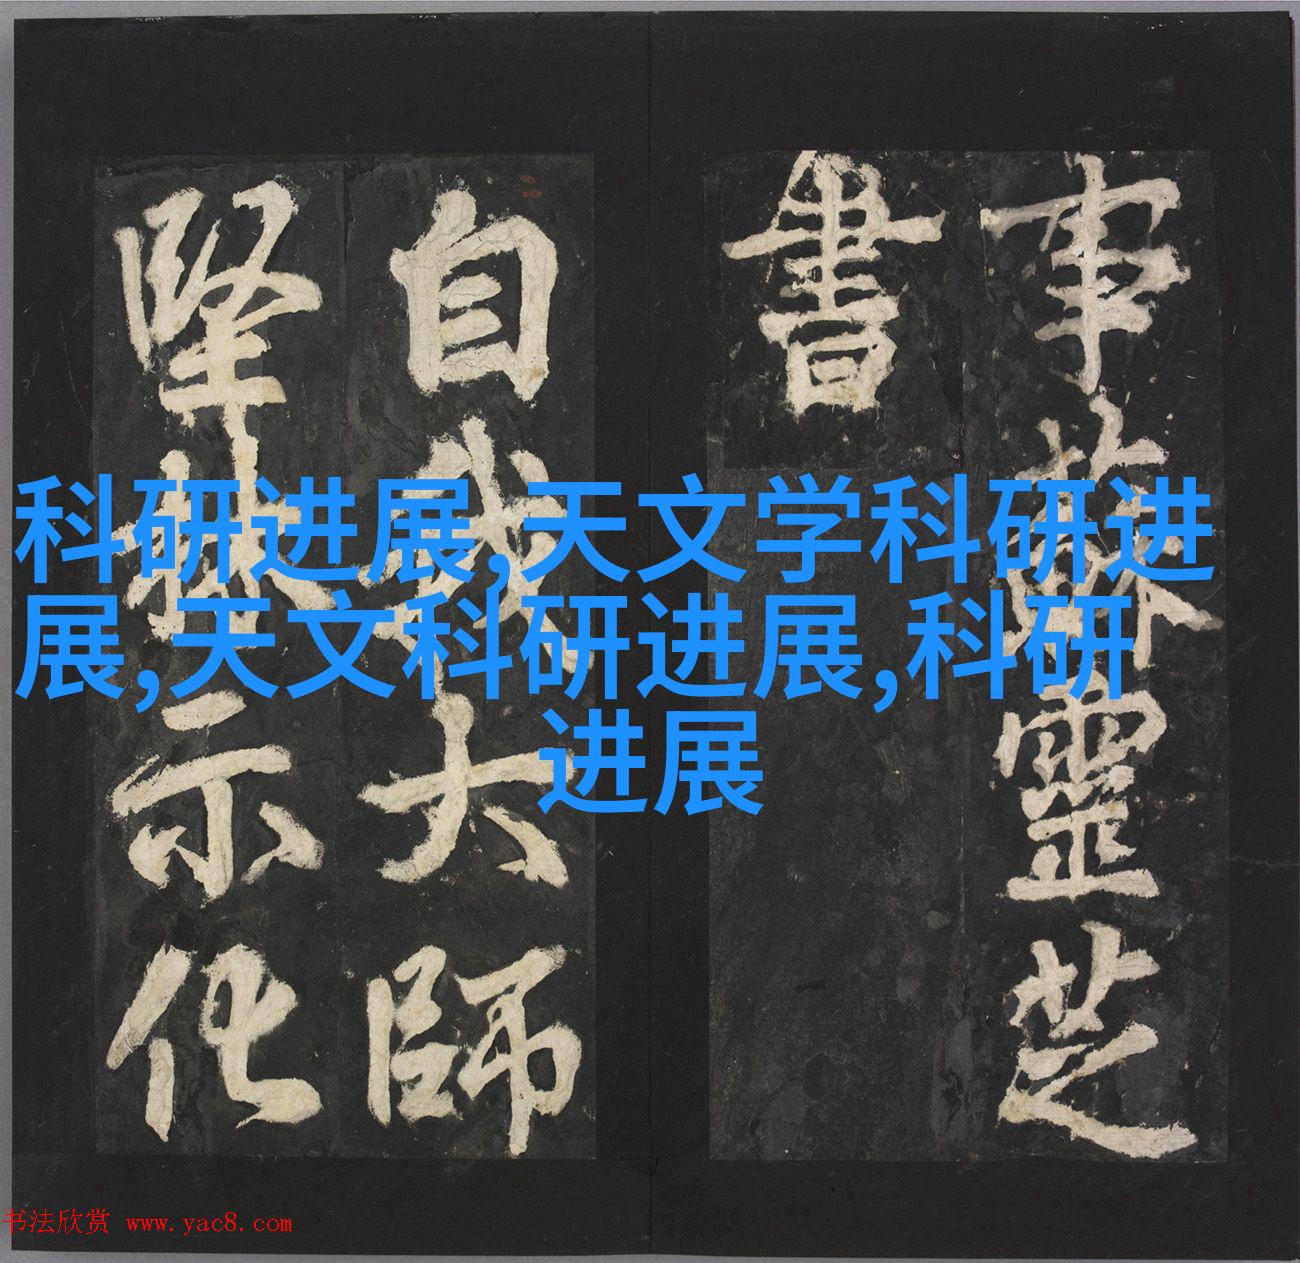 事蘇靈芝
書
自我大師
堅林示化
科研进展,天文学科研进
展,天文科研进展,科研
进展
书法欣赏 www.yac8.com